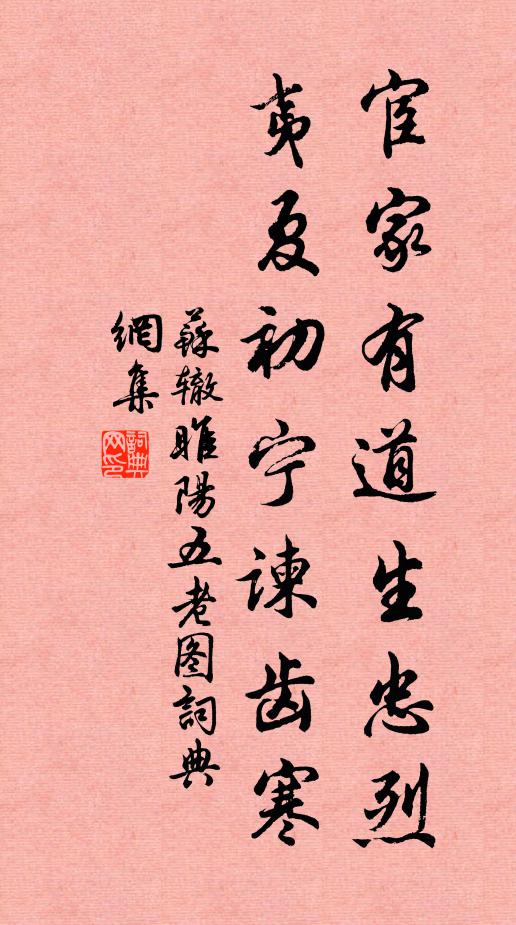 宦家有道生忠烈
夷夏初宁谏齿寒
蘇辙睢陽五老图詞典
網集
詞典网印